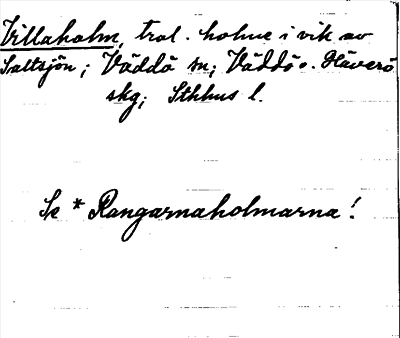 Villaholm, trol. holme i vik av
Saltsjön; Väddö sn; Väddö o. Häverö
skg; Sthlms l.
Se * Rangarnaholmarna!